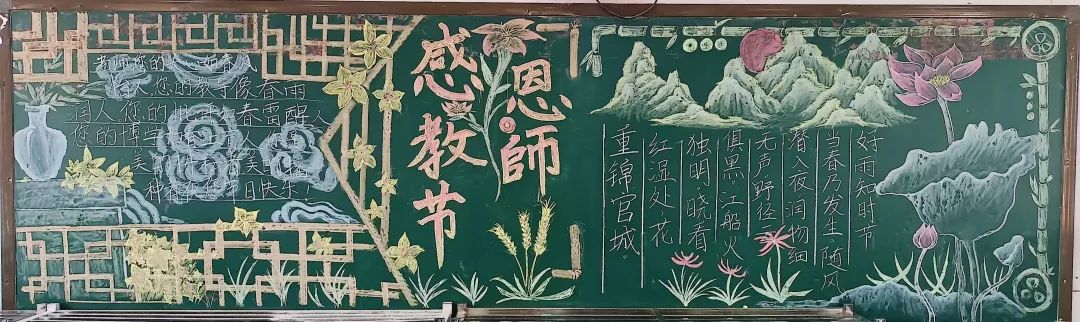 老师您的 如春风
人您的教导像春雨
润人您的批 春雷醒人
您的博学
美
种 日快乐!
感恩
教師
节
好雨知时节
当春乃发生,随风
潜入夜,润物细
无声.野径
俱黑,江船火
独明.晓看
红湿处,花
重锦官城.